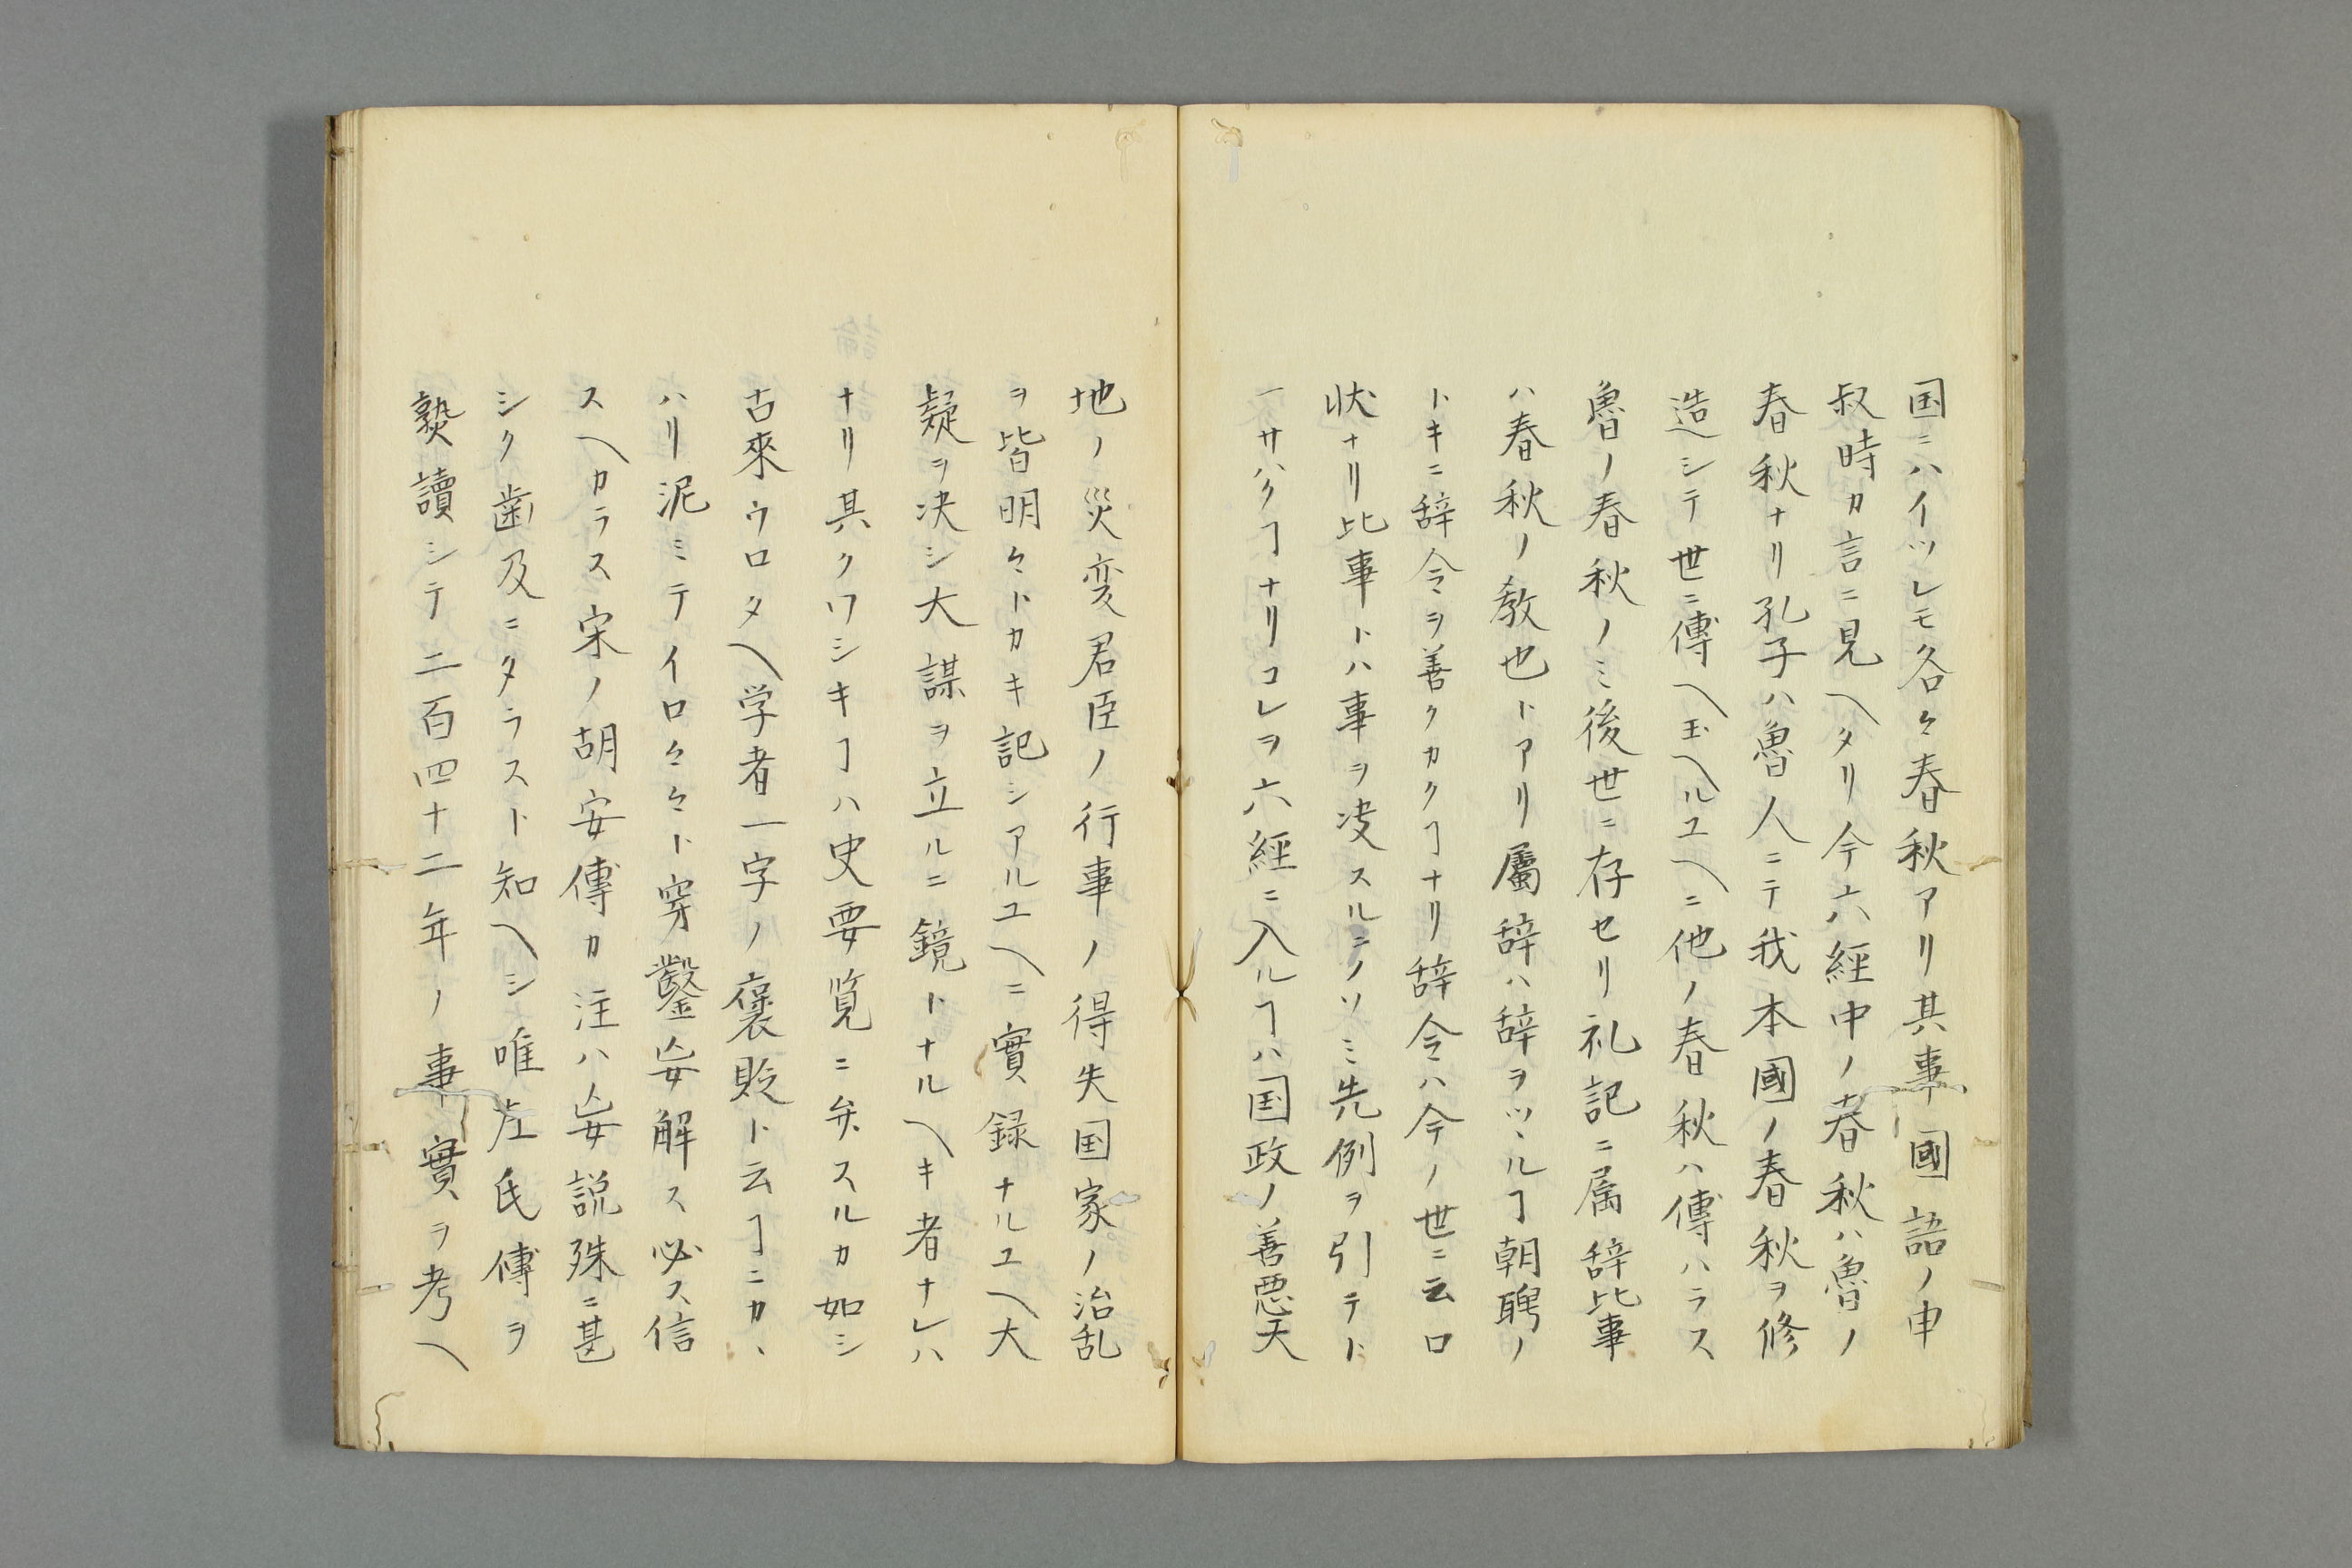 国ニハイツレモ各々春秋アリ其事國語ノ申
叔時カ言ニ見ヘタリ今六經中ノ春秋ハ魯ノ
春秋ナリ孔子ハ魯人ニテ我本國ノ春秋ヲ修
造シテ世ニ傳ヘ玉ヘルユヘニ他ノ春秋ハ傳ハラス
魯ノ春秋ノミ後世ニ存セリ礼記ニ属辞比事
ハ春秋ノ教也トアリ屬辞ハ辞ヲツヽルヿ朝聘ノ
トキニ辞令ヲ善クカクヿナリ辞令ハ今ノ世ニ云口
状ナリ比事トハ事ヲ决スルニノソミ先例ヲ引テト
一サハクヿナリコレヲ六經ニ入ルヿハ国政ノ善悪天
地ノ災変君臣ノ行事ノ得失国家ノ治乱
ヲ皆明々トカキ記シアルユヘニ實録ナルユヘ大
疑ヲ决シ大謀ヲ立ルニ鏡トナルヘキ者ナレハ
ナリ其クワシキヿハ史要覧ニ弁スルカ如シ
古來ウロタヘ学者一字ノ褒貶ト云ヿニカヽ
ハリ泥ミテイロ々々ト穿鑿妄解ス必ス信
スヘカラス宋ノ胡安傳カ注ハ妄説殊ニ甚
シク歯及ニタラスト知ヘシ唯左氏傳ヲ
熟讀シテ二百四十二年ノ事實ヲ考ヘ